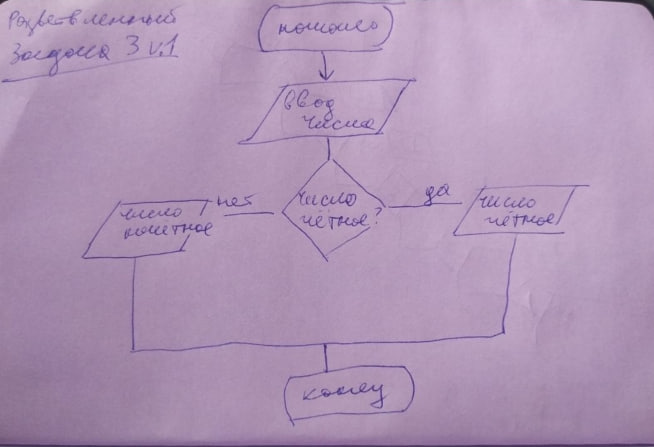 Разветвленный
Задача 3 v.1
начало
ввод
числа
число
чётное?
нет
да
число
нечётное
число
чётное
конец